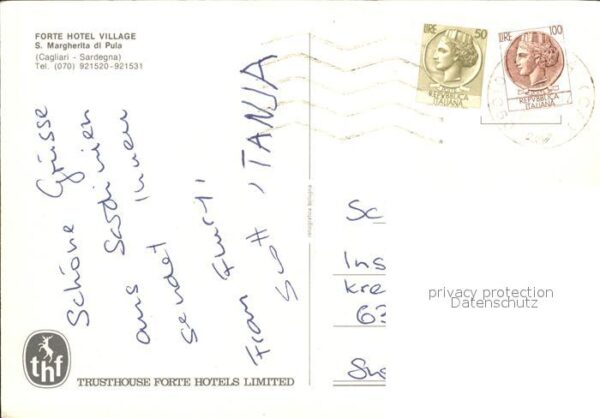 FORTE HOTEL VILLAGE
S. Margherita di Pula
(Cagliari - Sardegna)
Tel. (070) 921520-921531
Schöne Grüsse
aus Sardinien
sendet Ihnen
Frau
TANJA
thf
TRUSTHOUSE FORTE HOTELS LIMITED
LIRE 50
REPVBBLICA
ITALIANA
LIRE 100
REPVBBLICA
ITALIANA
Sc
Ins
Kre
63
privacy protection
Datenschutz